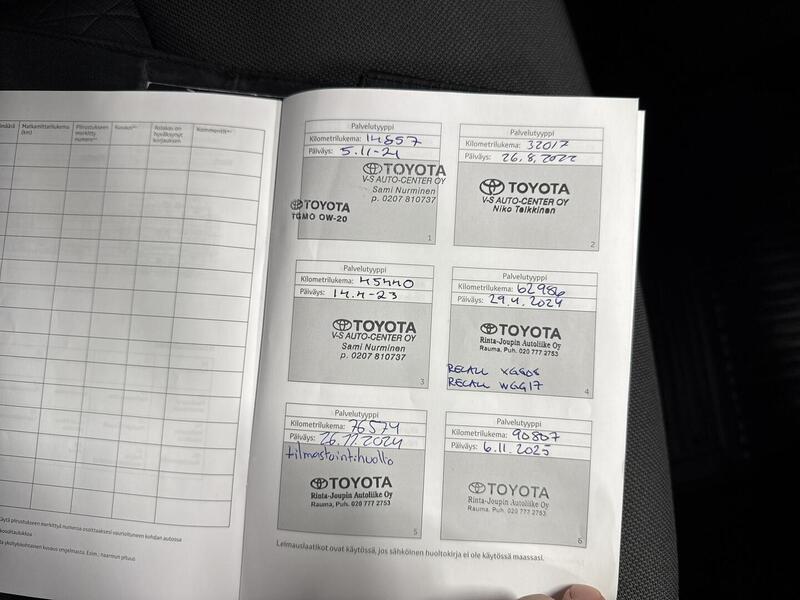 Matkamittarilukema (km)
Piirustukseen merkitty numero
Kuvaus
Asiakas on hyväksynyt korjauksen
Kommentit
Palvelutyyppi
Kilometrilukema: 14857
Päiväys: 5.11-21
TOYOTA
V-S AUTO-CENTER OY
Sami Nurminen
p. 0207 810737
TOYOTA
TGMO OW-20
1
Palvelutyyppi
Kilometrilukema: 32017
Päiväys: 26.8.2022
TOYOTA
V-S AUTO-CENTER OY
Niko Teikkinen
2
Palvelutyyppi
Kilometrilukema: 45440
Päiväys: 14.4-23
TOYOTA
V-S AUTO-CENTER OY
Sami Nurminen
p. 0207 810737
3
Palvelutyyppi
Kilometrilukema: 62986
Päiväys: 29.4.2024
TOYOTA
Rinta-Joupin Autoliike Oy
Rauma, Puh. 020 777 2753
RECALL
RECALL WGG17
4
Palvelutyyppi
Kilometrilukema: 76574
Päiväys: 26.11.2024
+ilmastointihuolto
TOYOTA
Rinta-Joupin Autoliike Oy
Rauma, Puh. 020 777 2753
5
Palvelutyyppi
Kilometrilukema: 90807
Päiväys: 6.11.2025
TOYOTA
Rinta-Joupin Autoliike Oy
Rauma, Puh. 020 777 2753
6
Leimauslaatikot ovat käytössä, jos sähköinen huoltokirja ei ole käytössä maassasi.
piirustukseen merkittyä numeroa osoittaaksesi vaurioituneen kohdan autossa
yksityiskohtainen kuvaus ongelmasta. Esim.: naarmun pituus